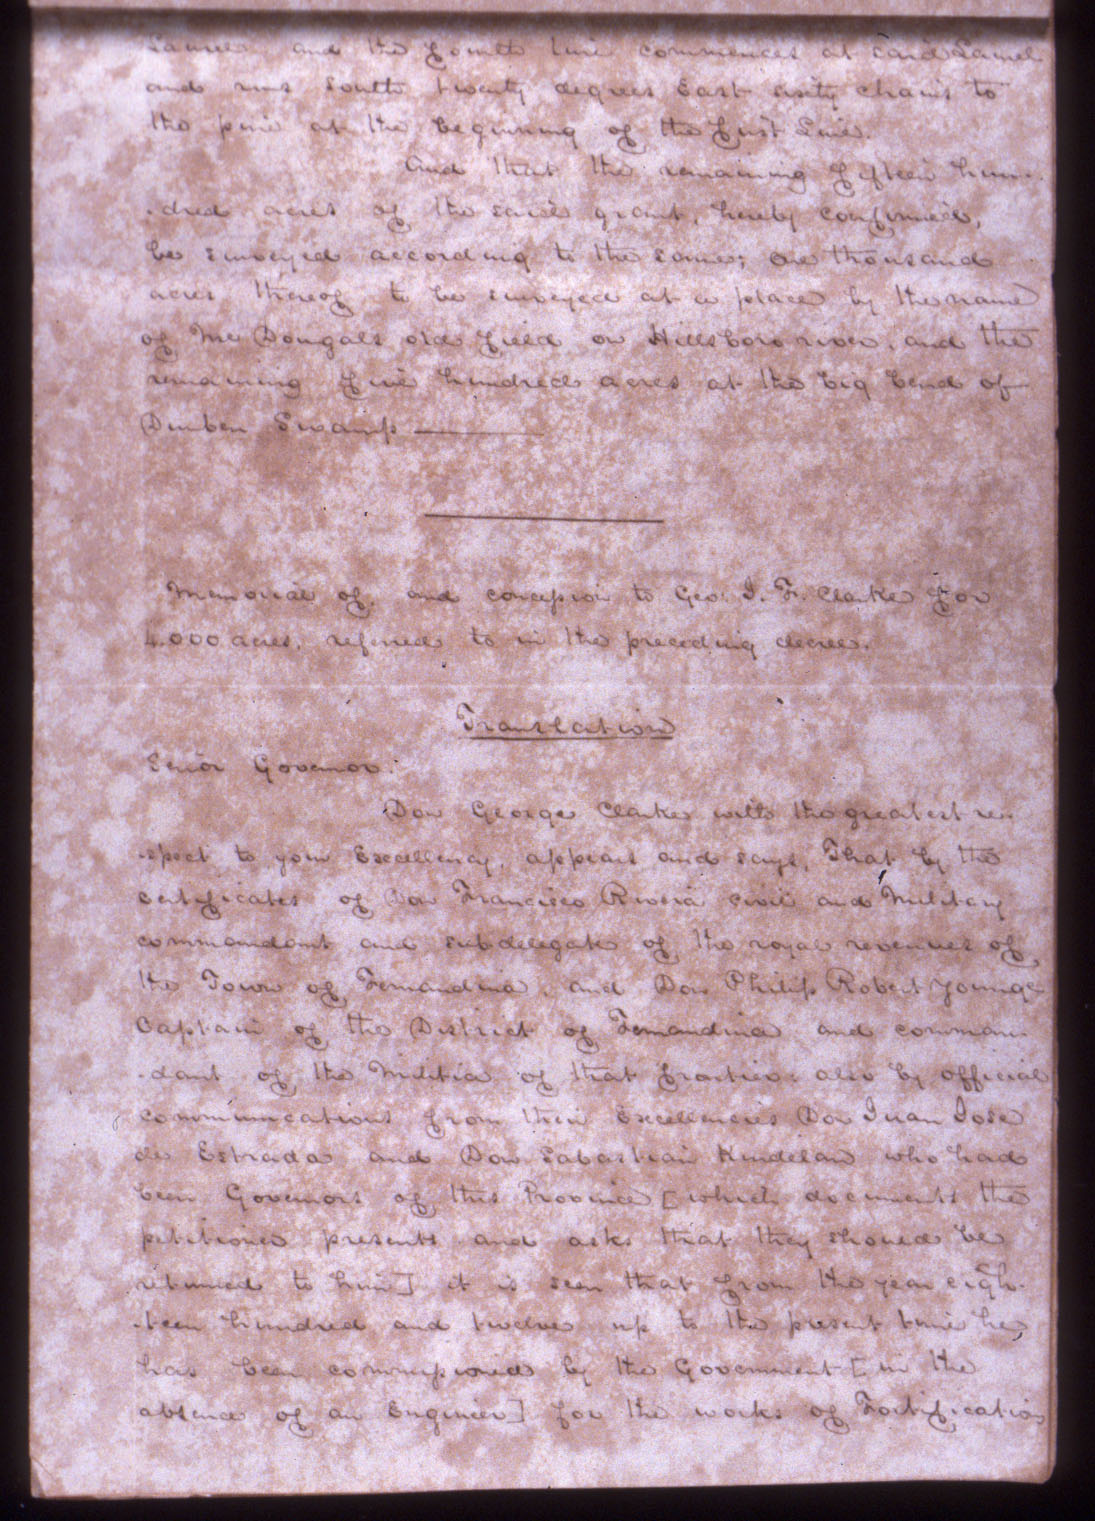 Laurel and the fourth line commences at said Laurel
and runs South twenty degrees East sixty chains to
the pine at the beginning of the first Line.
And that the remaining fifteen hun-
-dred acres of the said grant, hereby confirmed,
be surveyed according to the same; one thousand
acres thereof to be surveyed at a place by the name
of McDougals old field on Hillsboro river, and the
remaining five hundred acres at the big bend of
Dunben Swamp
Memorial of, and concession to Geo: J. F. Clarke for
4.000 acres, referred to in the preceding decree.
Translation
Señor Govenor:
Don George Clarke with the greatest re-
-spect to your Excellency, appears and says, That by the
certificates of Don Francisco Rivera civil and Military
commandant and subdelegate of the royal revenues of
the Town of Fernandina, and Don Philip Robert Younge
Captain of the District of Fernandina and comman-
-dant of the Militia of that frontier: also by official
communications from their Excellencies Don Juan Jose
de Estrada and Don Sabastian Kindelan who had
been Govenors of this Province [which documents the
petitioner presents and asks that they should be
returned to him] it is seen that from the year eigh-
-teen hundred and twelve up to the present time he,
has been commissioned by the Government [in the
absence of an Engineer] for the works of Fortification